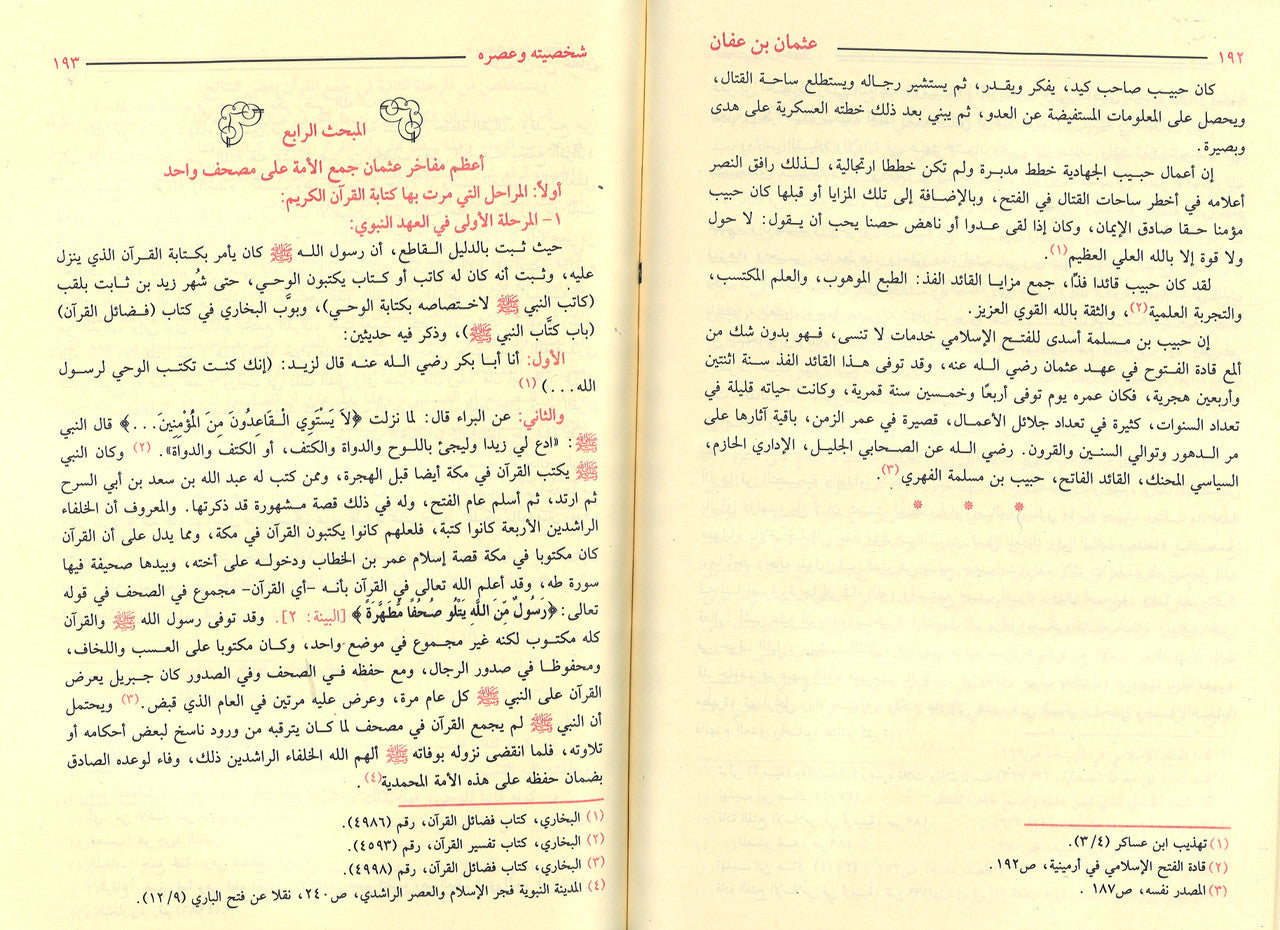 ١٩٢
عثمان بن عفان
كان حبيب صاحب كيد، يفكر ويقدر، ثم يستشير رجاله ويستطلع ساحة القتال،
ويحصل على المعلومات المستفيضة عن العدو، ثم يبني بعد ذلك خطته العسكرية على هدى
وبصيرة.
إن أعمال حبيب الجهادية خطط مدبرة ولم تكن خططا ارتجالية، لذلك رافق النصر
أعلامه في أخطر ساحات القتال في الفتح، وبالإضافة إلى تلك المزايا أو قبلها كان حبيب
مؤمنا حقا صادق الإيمان، وكان إذا لقى عدوا أو ناهض حصنا يحب أن يقول: لا حول
ولا قوة إلا بالله العلي العظيم(١).
لقد كان حبيب قائدا فذًا، جمع مزايا القائد الفذ: الطبع الموهوب، والعلم المكتسب،
والتجربة العلمية(٢)، والثقة بالله القوي العزيز.
إن حبيب بن مسلمة أسدى للفتح الإسلامي خدمات لا تنسى، فهو بدون شك من
ألمع قادة الفتوح في عهد عثمان رضي الله عنه، وقد توفى هذا القائد الفذ سنة اثنتين
وأربعين هجرية، فكان عمره يوم توفى أربعًا وخمسين سنة قمرية، وكانت حياته قليلة في
تعداد السنوات، كثيرة في تعداد جلائل الأعمال، قصيرة في عمر الزمن، باقية آثارها على
مر الدهور وتوالي السنين والقرون. رضي الله عن الصحابي الجليل، الإداري الحازم،
السياسي المحنك، القائد الفاتح، حبيب بن مسلمة الفهري(٣).
* * *
(١) تهذيب ابن عساكر (٣/٤).
(٢) قادة الفتح الإسلامي في أرمينية، ص١٩٢.
(٣) المصدر نفسه، ص١٨٧ .
شخصيته وعصره
١٩٣
المبحث الرابع
أعظم مفاخر عثمان جمع الأمة على مصحف واحد
أولاً: المراحل التي مرت بها كتابة القرآن الكريم:
١- المرحلة الأولى في العهد النبوي:
حيث ثبت بالدليل القاطع، أن رسول الله ﷺ كان يأمر بكتابة القرآن الذي ينزل
عليه، وثبت أنه كان له كاتب أو كتاب يكتبون الوحي، حتى شُهر زيد بن ثابت بلقب
(كاتب النبي ﷺ لاختصاصه بكتابة الوحي)، وبوَّب البخاري في كتاب (فضائل القرآن)
(باب كتَّاب النبي ﷺ)، وذكر فيه حديثين:
الأول: أنا أبا بكر رضي الله عنه قال لزيد: (إنك كنت تكتب الوحي لرسول
الله...) (١)
والثاني: عن البراء قال: لما نزلت ﴿لاَ يَسْتَوِي الْقَاعِدُونَ مِنَ الْمُؤْمِنِينَ...﴾ قال النبي
ﷺ: «ادع لي زيدا وليجئ باللوح والدواة والكتف، أو الكتف والدواة». (٢) وكان النبي
ﷺ يكتب القرآن في مكة أيضا قبل الهجرة، وممن كتب له عبد الله بن سعد بن أبي السرح
ثم ارتد، ثم أسلم عام الفتح، وله في ذلك قصة مشهورة قد ذكرتها. والمعروف أن الخلفاء
الراشدين الأربعة كانوا كتبة، فلعلهم كانوا يكتبون القرآن في مكة، ومما يدل على أن القرآن
كان مكتوبا في مكة قصة إسلام عمر بن الخطاب ودخوله على أخته، وبيدها صحيفة فيها
سورة طه، وقد أعلم الله تعالى في القرآن بأنه -أي القرآن- مجموع في الصحف في قوله
تعالى: ﴿رَسُولٌ مِّنَ اللَّهِ يَتْلُو صُحُفًا مُّطَهَّرَةً﴾ [البينة: ٢]. وقد توفى رسول الله ﷺ والقرآن
كله مكتوب لكنه غير مجموع في موضع واحد، وكان مكتوبا على العسب واللخاف،
ومحفوظا في صدور الرجال، ومع حفظه في الصحف وفي الصدور كان جبريل يعرض
القرآن على النبي ﷺ كل عام مرة، وعرض عليه مرتين في العام الذي قبض.(٣) ويحتمل
أن النبي ﷺ لم يجمع القرآن في مصحف لما كان يترقبه من ورود ناسخ لبعض أحكامه أو
تلاوته، فلما انقضى نزوله بوفاته ﷺ ألهم الله الخلفاء الراشدين ذلك، وفاء لوعده الصادق
بضمان حفظه على هذه الأمة المحمدية(٤).
(١) البخاري، كتاب فضائل القرآن، رقم (٤٩٨٦).
(٢) البخاري، كتاب تفسير القرآن، رقم (٤٥٩٣).
(٣) البخاري، كتاب فضائل القرآن، رقم (٤٩٩٨).
(٤) المدينة النبوية فجر الإسلام والعصر الراشدي، ص٢٤٠، نقلا عن فتح الباري (١٢/٩).